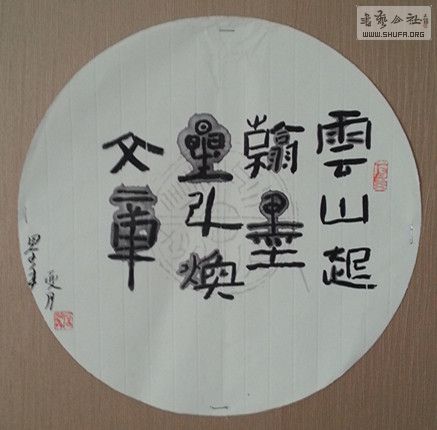 書藝公社
WWW.SHUFA.ORG
雲山起
翰墨
星斗煥
文章
夏月